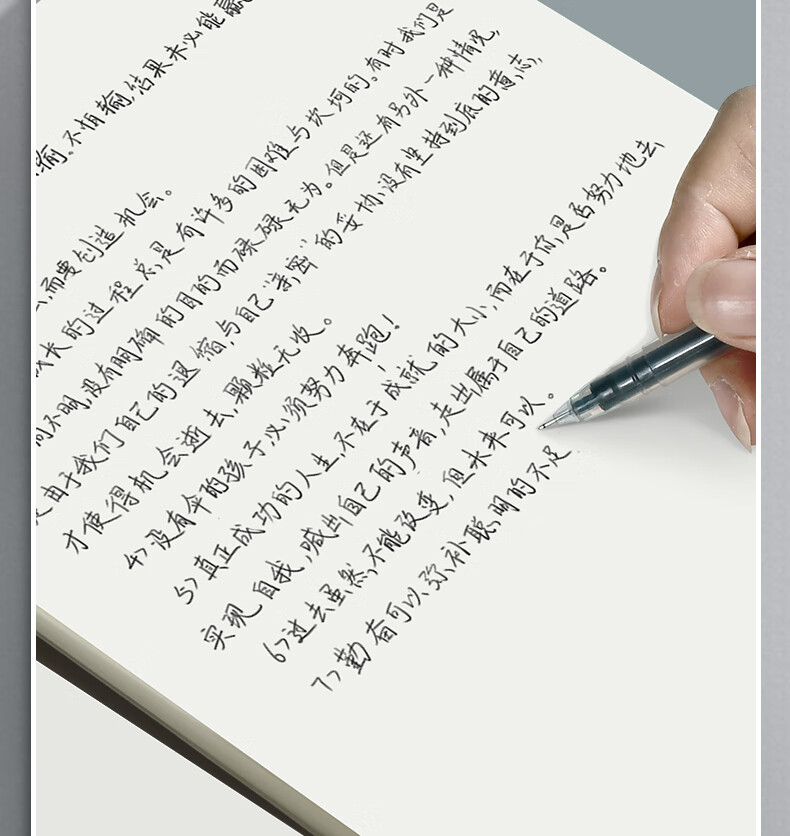 输。不怕输,结果未必能赢
,而要创造机会。
成长的过程总是有许多的困难与坎坷的。有时我们是
向不明,没有明确的目的而碌碌无为。但是还有另外一种情况,
是由于我们自己的退缩,与自己“亲密”的妥协,没有坚持到底的意志,
才使得机会逝去,颗粒无收。
4>没有伞的孩子,必须努力奔跑!
5>真正成功的人生,不在于成就的大小,而在于你是否努力地去
实现自我,喊出自己的声音,走出属于自己的道路。
6>过去虽然不能改变,但未来可以。
7>勤奋可以弥补聪明的不足